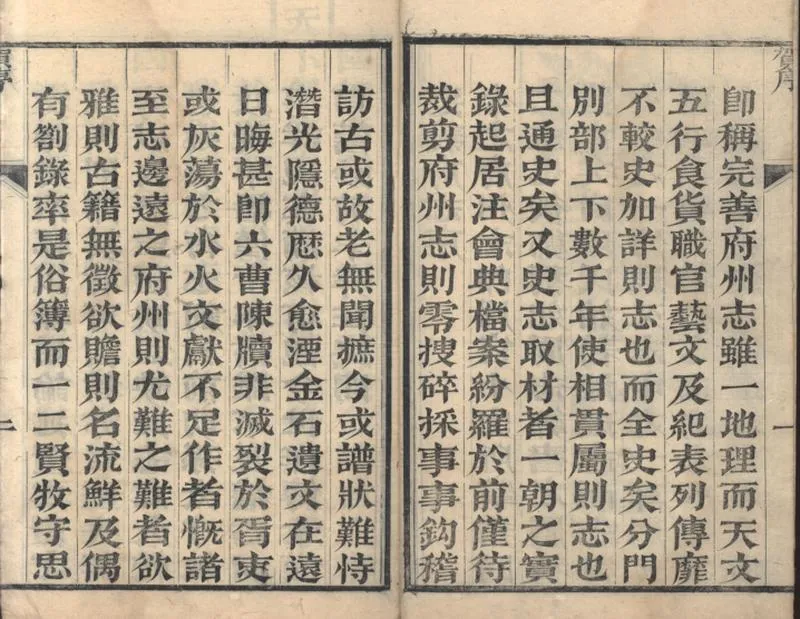 賀序
卽稱完善府州志雖一地理而天文
五行食貨職官藝文及紀表列傳靡
不較史加詳則志也而全史矣分門
別部上下數千年使相貫屬則志也
且通史矣又史志取材者一朝之實
錄起居注會典檔案紛羅於前僅待
裁剪府州志則零搜碎採事事鈎稽
一
訪古或故老無聞摭今或譜狀難恃
潛光隱德歷久愈湮金石遺文在遠
日晦甚卽六曹陳牘非滅裂於胥吏
或灰蕩於水火文獻不足作者慨諸
至志邊遠之府州則尤難之難者欲
雅則古籍無徵欲贍則名流鮮及偶
有劄錄率是俗簿而一二賢牧守思
賀序
一